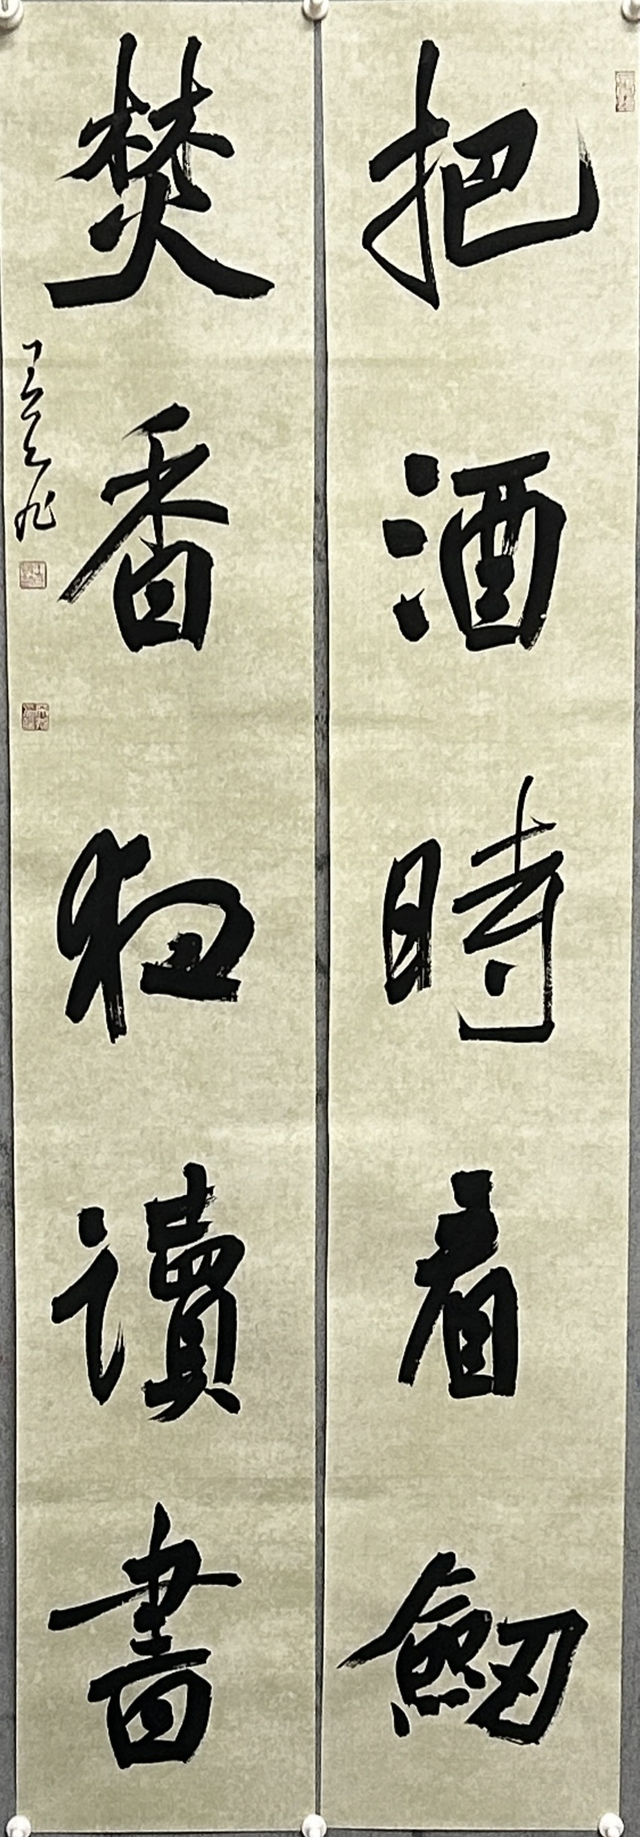 把酒時看劒
焚香夜讀書